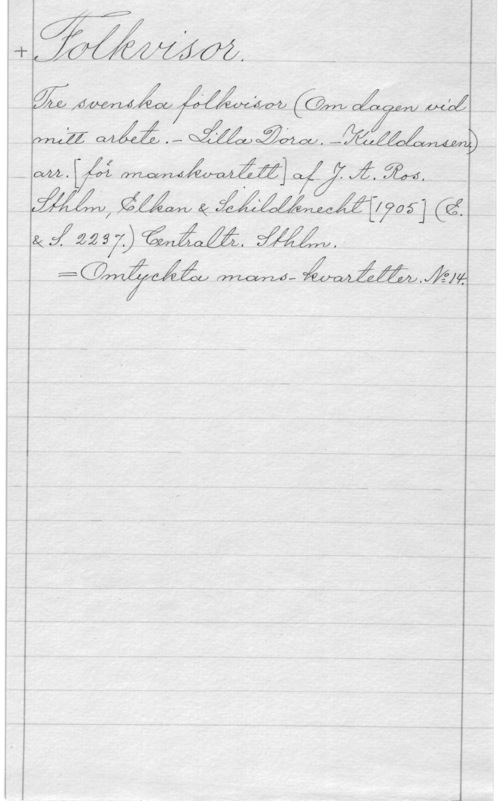 + Folkvisor.
Tre svenska folkvisor (Om dagen vid
mitt arbete. - Lilla Dora. - Kulldansen)
arr. [för manskvartett] af J. A. Ros.
Sthlm, Elkan & Schildknecht [1905] (E.
& S. 2237.) Centraltr. Sthlm.
= Omtyckta mans-kvartetter. № 14.